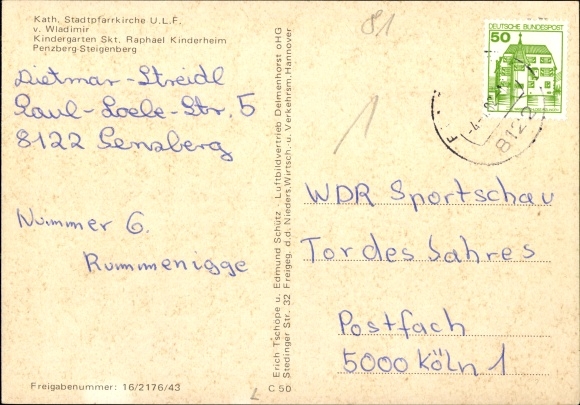 Kath. Stadtpfarrkirche U.L.F.
v. Wladimir
Kindergarten Skt. Raphael Kinderheim
Penzberg-Steigenberg
Dietmar-Streidl
Paul-Loebe-Str. 5
8122 Penzberg
Nummer 6.
Rummenigge
Freigabenummer: 16/2176/43
Erich Tschöpe u. Edmund Schütz - Luftbildvertrieb Delmenhorst oHG
Stedinger Str. 32 Freigeg. d.d. Nieders. Wirtsch.- u. Verkehrsm. Hannover
C 50
81
DEUTSCHE BUNDESPOST
50
8122
WDR Sportschau
Tor des Jahres
Postfach
5000 Köln 1